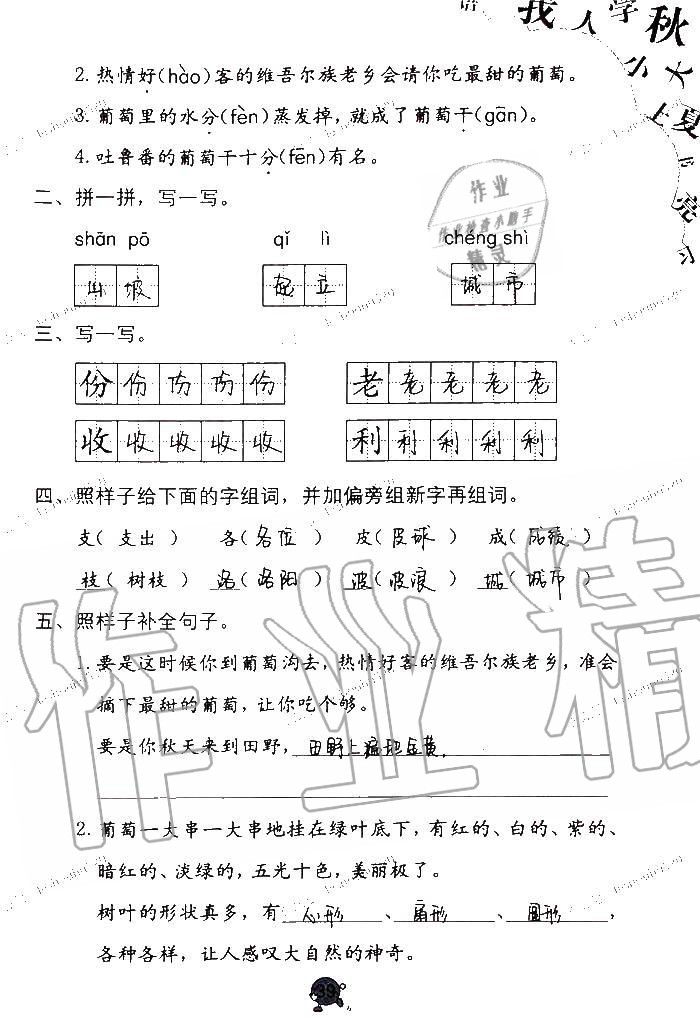 语 我 人 学 秋
2. 热情好(hào)客的维吾尔族老乡会请你吃最甜的葡萄。
3. 葡萄里的水分(fèn)蒸发掉，就成了葡萄干(gān)。
4. 吐鲁番的葡萄干十分(fēn)有名。
二、拼一拼，写一写。
shān pō qǐ lì chéng shì
山坡 起立 城市
三、写一写。
份份份份份 老老老老老
收收收收收 利利利利利
四、照样子给下面的字组词，并加偏旁组新字再组词。
支( 支出 ) 各( 各位 ) 皮( 皮球 ) 成( 成绩 )
枝( 树枝 ) 洛( 洛阳 ) 波( 波浪 ) 城( 城市 )
五、照样子补全句子。
1. 要是这时候你到葡萄沟去，热情好客的维吾尔族老乡，准会
摘下最甜的葡萄，让你吃个够。
要是你秋天来到田野，田野上遍地金黄。
2. 葡萄一大串一大串地挂在绿叶底下，有红的、白的、紫的、
暗红的、淡绿的，五光十色，美丽极了。
树叶的形状真多，有 心形 、 扇形 、 圆形 ，
各种各样，让人感叹大自然的神奇。
39
作业
作业检查小助手
精灵
作业精